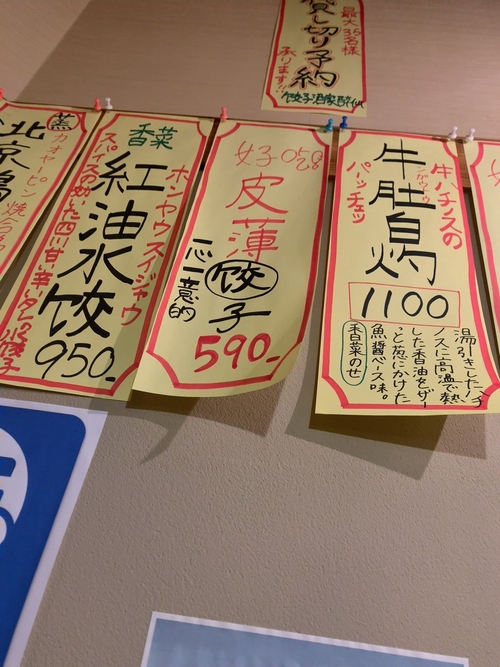 貸し切り予約
最大35名様
承ります!!
餃子酒家酔仙
牛肚白灼
牛ハチノスの
パーッチェッ
1100
湯引きしたハチ
ノスに高温で熱
した香油をザー
っと葱にかけた
魚醤ベース味。
香菜のせ
好
皮薄
餃子
一心一意的
590-
香菜
紅油水餃
ホンヤウスイジャウ
スパイスの効いた四川甘辛タレの水餃子
950-
北京
蒸
カオヤーピン